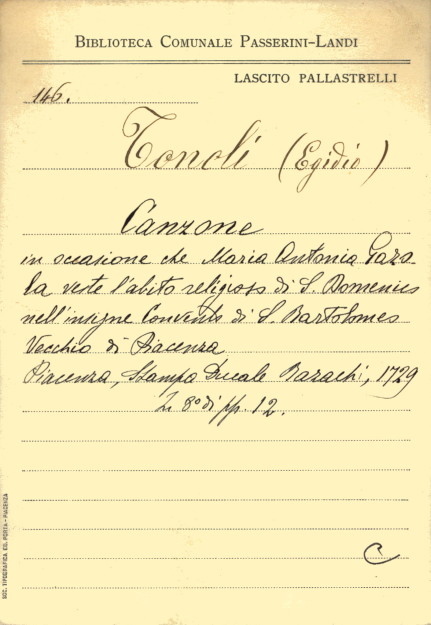 BIBLIOTECA COMUNALE PASSERINI-LANDI
LASCITO PALLASTRELLI
146.
Tonoli (Egidio)
Canzone
in occasione che Maria Antonia Gaza-
la veste l'abito religioso di S. Domenico
nell'insigne Convento di S. Bartolomeo
Vecchio di Piacenza
Piacenza, Stampa Ducale Bazachi, 1729
In 8º di pp. 12.
C
SOC. TIPOGRAFICA ED. PORTA - PIACENZA